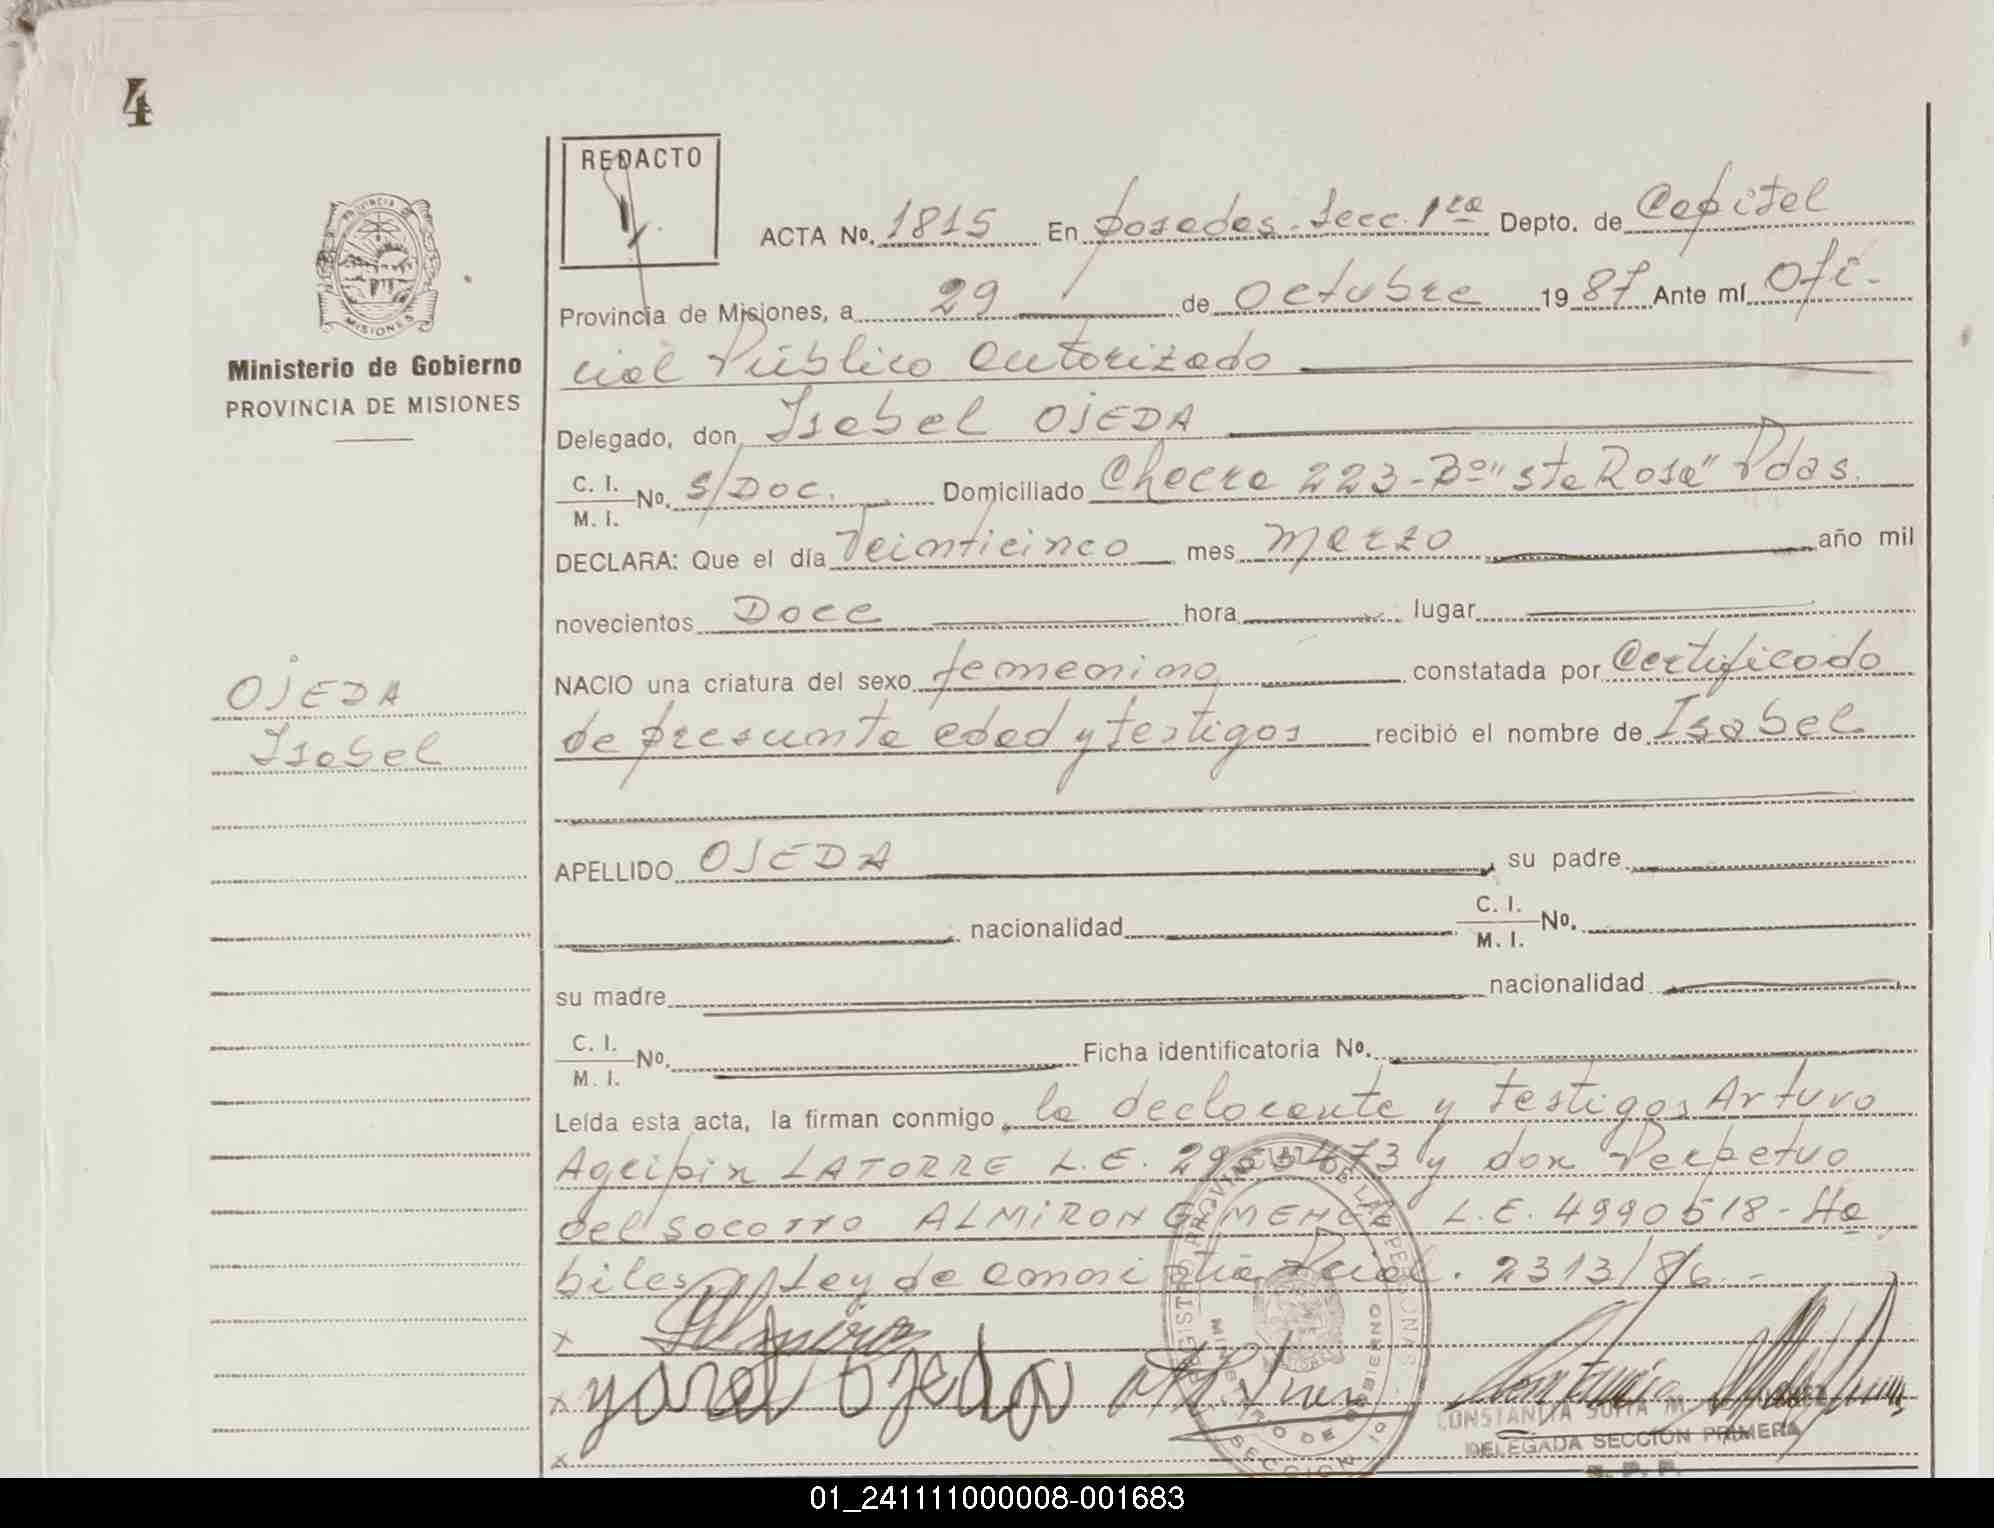 4
REDACTO
ACTA No. 1815 En Posadas - Secc. 1ra Depto. de Capital
PROVINCIA DE MISIONES
Provincia de Misiones, a 29 de Octubre 1987 Ante mí Ofi-
Ministerio de Gobierno
cial Público autorizado
PROVINCIA DE MISIONES
Delegado, don Isabel OJEDA
C. I. M. I. No. S/DOC. Domiciliado Chacra 223 - Bo "Sta Rosa" Pdas.
DECLARA: Que el día Veinticinco mes Marzo año mil
novecientos Doce hora lugar
NACIO una criatura del sexo femenino constatada por Certificado
OJEDA
de presunta edad y testigos recibió el nombre de Isabel
Isabel
APELLIDO OJEDA su padre
nacionalidad C. I. M. I. No.
su madre nacionalidad
C. I. M. I. No. Ficha identificatoria No.
Leída esta acta, la firman conmigo, la declarante y testigos Arturo
Agripin LATORRE L.E. 473 y don Perpetuo
del Socorro ALMIRON L.E. 4990518 - Ha
biles Ley de amnistía Pcial. 2313/86.-
x Almiron
x Ojeda
x
REGISTRO PROVINCIAL DE LAS PERSONAS
MINISTERIO DE GOBIERNO
SECCION 1a
CONSTANCIA
DELEGADA SECCION PRIMERA
R. P. P.
01_241111000008-001683